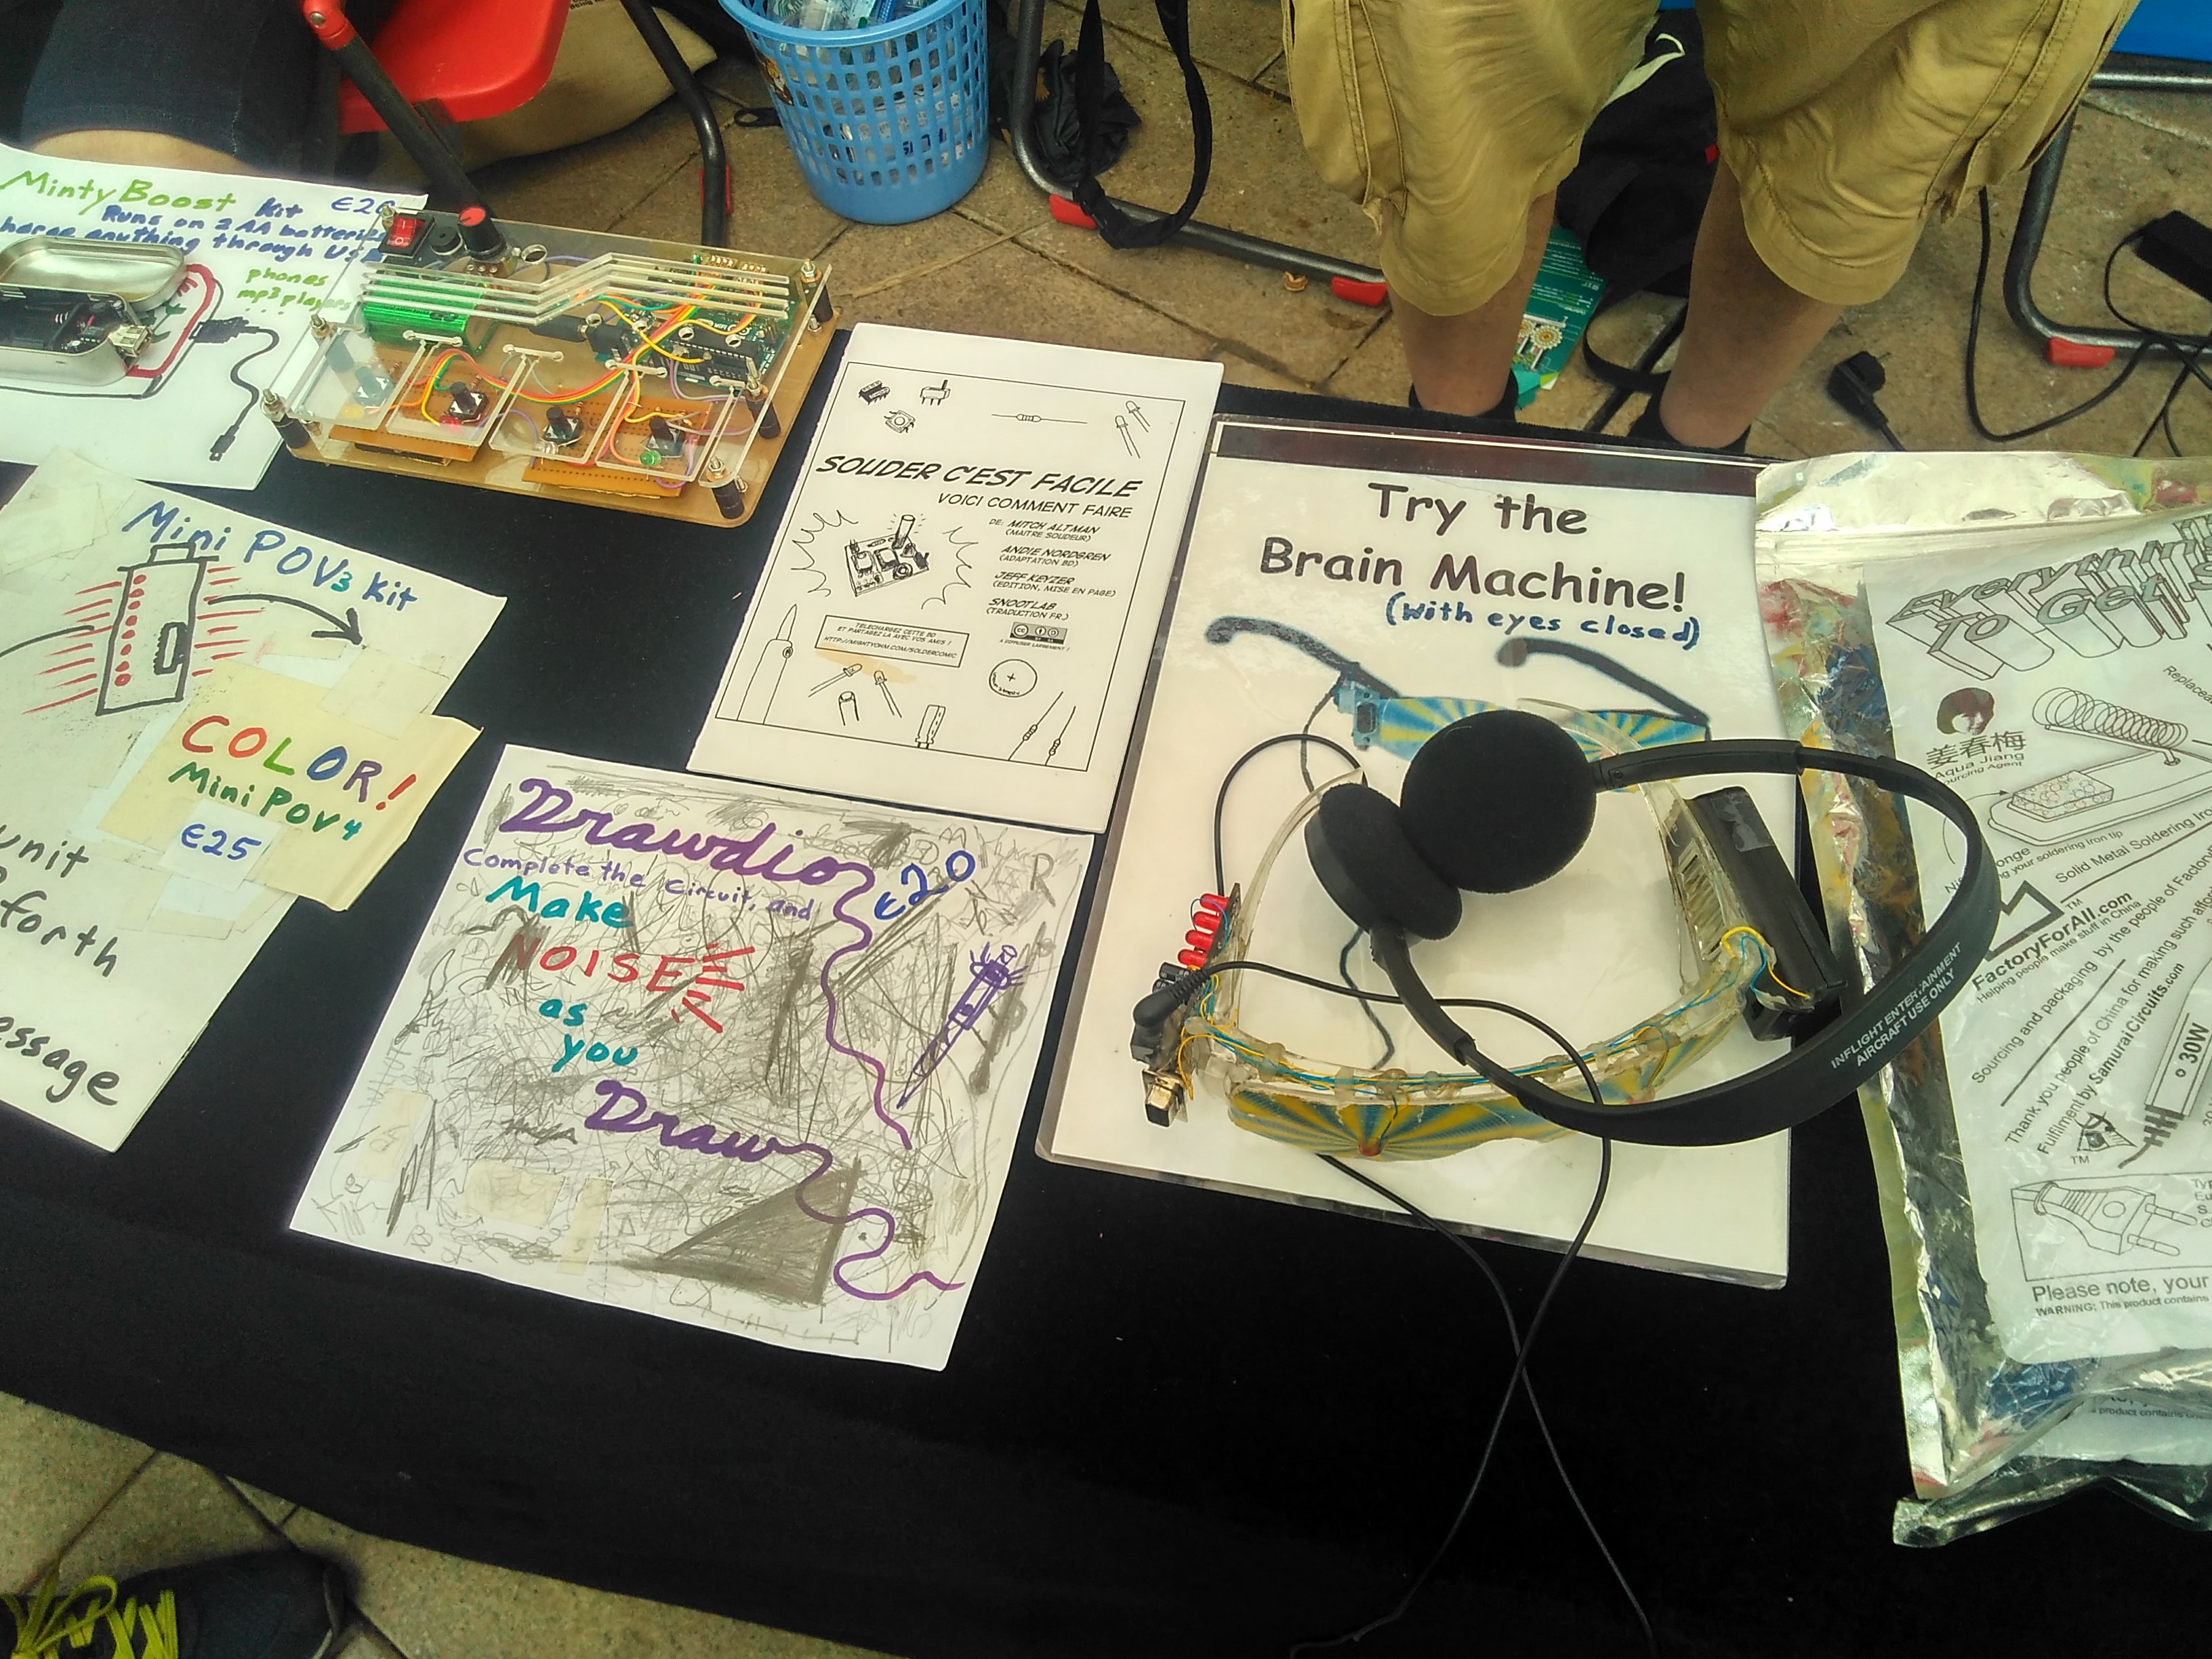 Minty Boost Kit
Runs on 2 AA batteries
charge anything through USB
phones
mp3 players
...
Mini POV3 Kit
COLOR!
Mini POV4
€25
unit
forth
essage
SOUDER C'EST FACILE
VOICI COMMENT FAIRE
DE: MITCH ALTMAN
(MAITRE SOUDEUR)
ANDIE NORDGREN
(ADAPTATION BD)
JEFF KEYZER
(EDITION, MISE EN PAGE)
SNOOTLAB
(TRADUCTION FR.)
TELECHARGEZ CETTE BD
ET PARTAGEZ LA AVEC VOS AMIS !
HTTP://MIGHTYOHM.COM/SOLDERCOMIC
A DIFFUSER LARGEMENT !
Drawdio
€20
Complete the Circuit, and
Make
NOISE
as
you
Draw
Try the
Brain Machine!
(with eyes closed)
INFLIGHT ENTERTAINMENT
AIRCRAFT USE ONLY
To Get
姜春梅
Aqua Jiang
Sourcing Agent
your soldering iron tip
Solid Metal Soldering Iron
FactoryForAll.com
TM
Helping people make stuff in China
Sourcing and packaging by the people of Factory
Thank you people of China for making such
Fulfilment by SamuraiCircuits.com
TM
30W
Please note, your
WARNING: This product contains
product contains